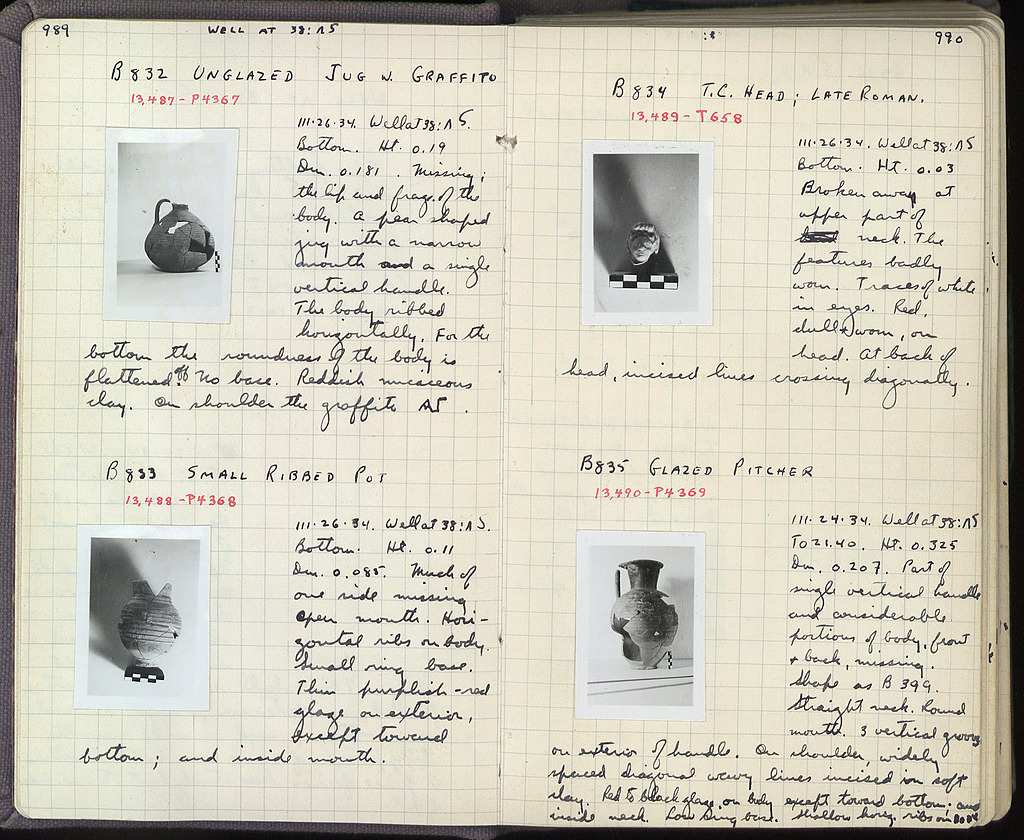 989
WELL AT 38:ΛΣ
B 832 UNGLAZED JUG W. GRAFFITO
13,487 - P4367
III·26·34. Well at 38:ΛΣ.
Bottom. Ht. 0.19
Dm. 0.181. Missing;
the lip and frags. of the
body. A pear shaped
jug with a narrow
mouth and a single
vertical handle.
The body ribbed
horizontally. For the
bottom the roundness of the body is
flattened off. No base. Reddish micaceous
clay. On shoulder the graffito
B 833 SMALL RIBBED POT
13,488 - P4368
III·26·34. Well at 38:ΛΣ.
Bottom. Ht. 0.11
Dm. 0.085. Much of
one side missing
open mouth. Hori-
zontal ribs on body.
Small ring base.
Thin purplish-red
glaze on exterior,
except toward
bottom; and inside mouth.
990
B 834 T.C. HEAD; LATE ROMAN.
13,489 - T658
III·26·34. Well at 38:ΛΣ
Bottom. Ht. 0.03
Broken away at
upper part of
neck. The
features badly
worn. Traces of white
in eyes. Red,
dull + worn, on
head. At back of
head, incised lines crossing diagonally.
B835 GLAZED PITCHER
13,490 - P4369
III·24·34. Well at 38:ΛΣ
To 21.40. Ht. 0.325
Dm. 0.207. Part of
single vertical handle
and considerable
portions of body, front
+ back, missing.
Shape as B 399.
Straight neck. Round
mouth. 3 vertical grooves
on exterior of handle. On shoulder, widely
spaced diagonal wavy lines incised in soft
clay. Red to black glaze, on body except toward bottom; and
inside neck. Low ring base. Shallow horiz. ribs on body